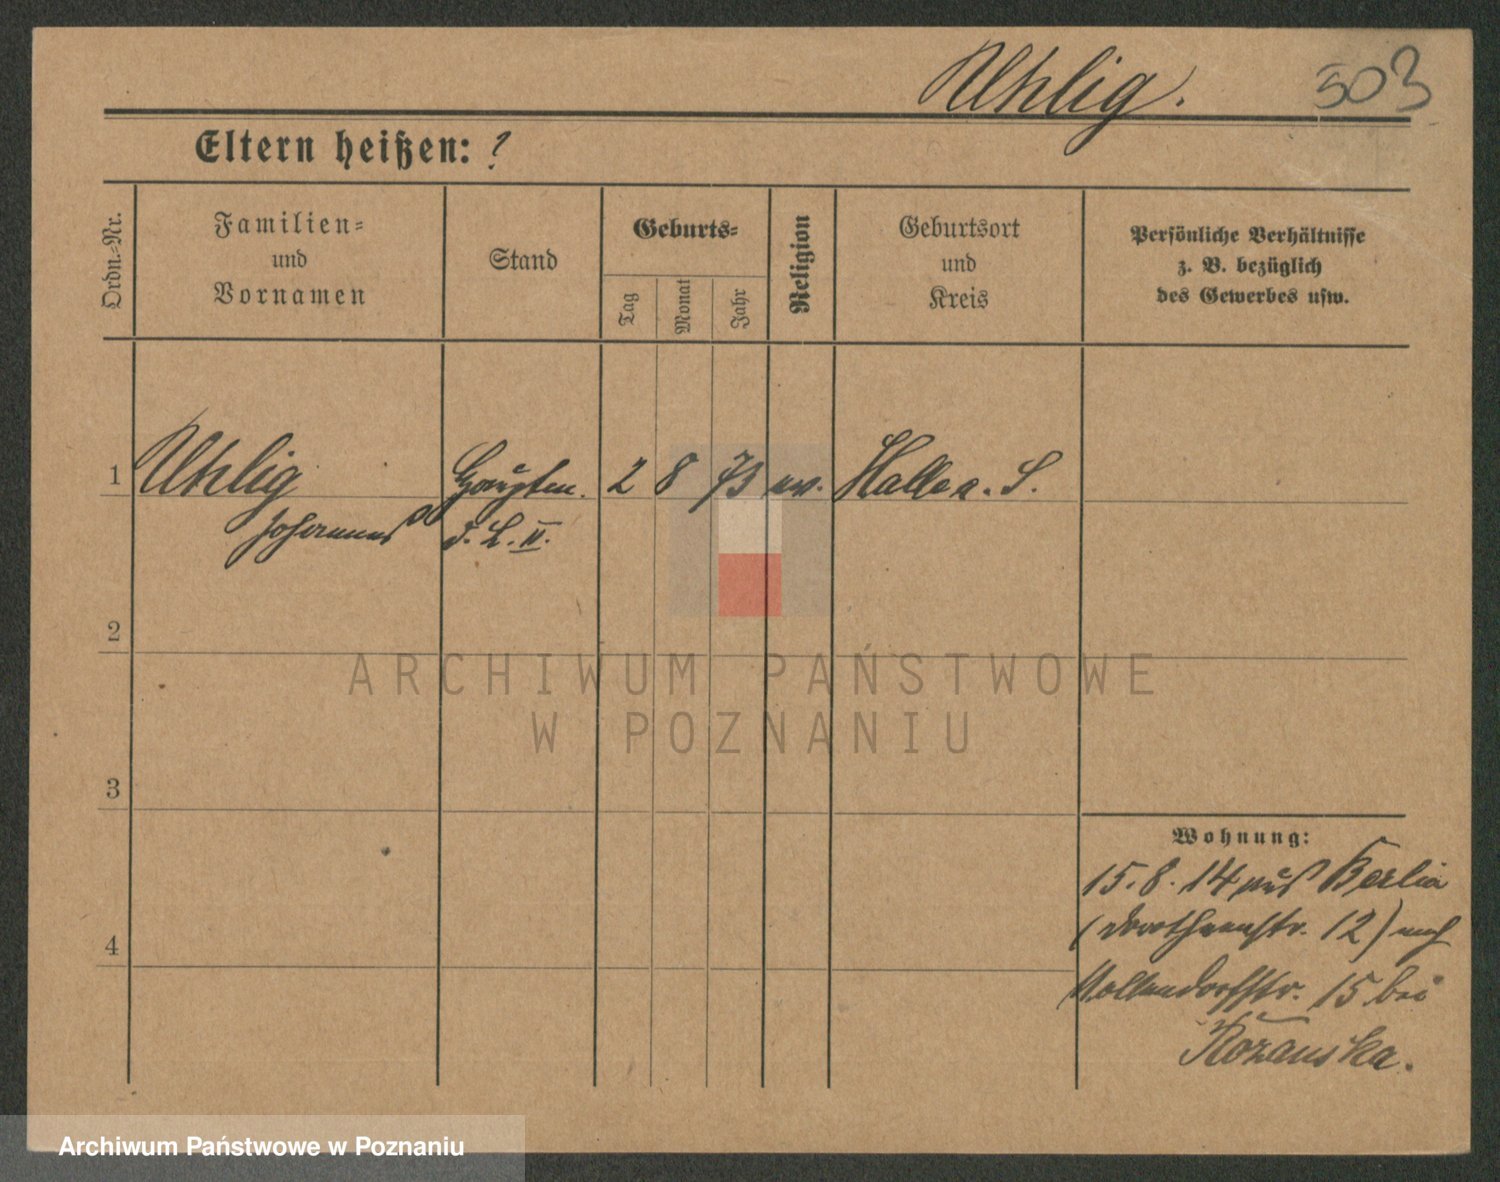 Uhlig. 503
Eltern heißen: ?
Ordn.-Nr.
Familien- und Vornamen
Stand
Geburts-
Tag
Monat
Jahr
Religion
Geburtsort und Kreis
Persönliche Verhältnisse
z. B. bezüglich
des Gewerbes usw.
1 Uhlig Hauptm. 2 8 73 ev. Halle a. S.
Johannes d. L. II.
2
ARCHIWUM PAŃSTWOWE
W POZNANIU
3
Wohnung:
15.8.14 aus Berlin
(Dorotheenstr. 12) nach
4
15 bei
Rožanska.
Archiwum Państwowe w Poznaniu